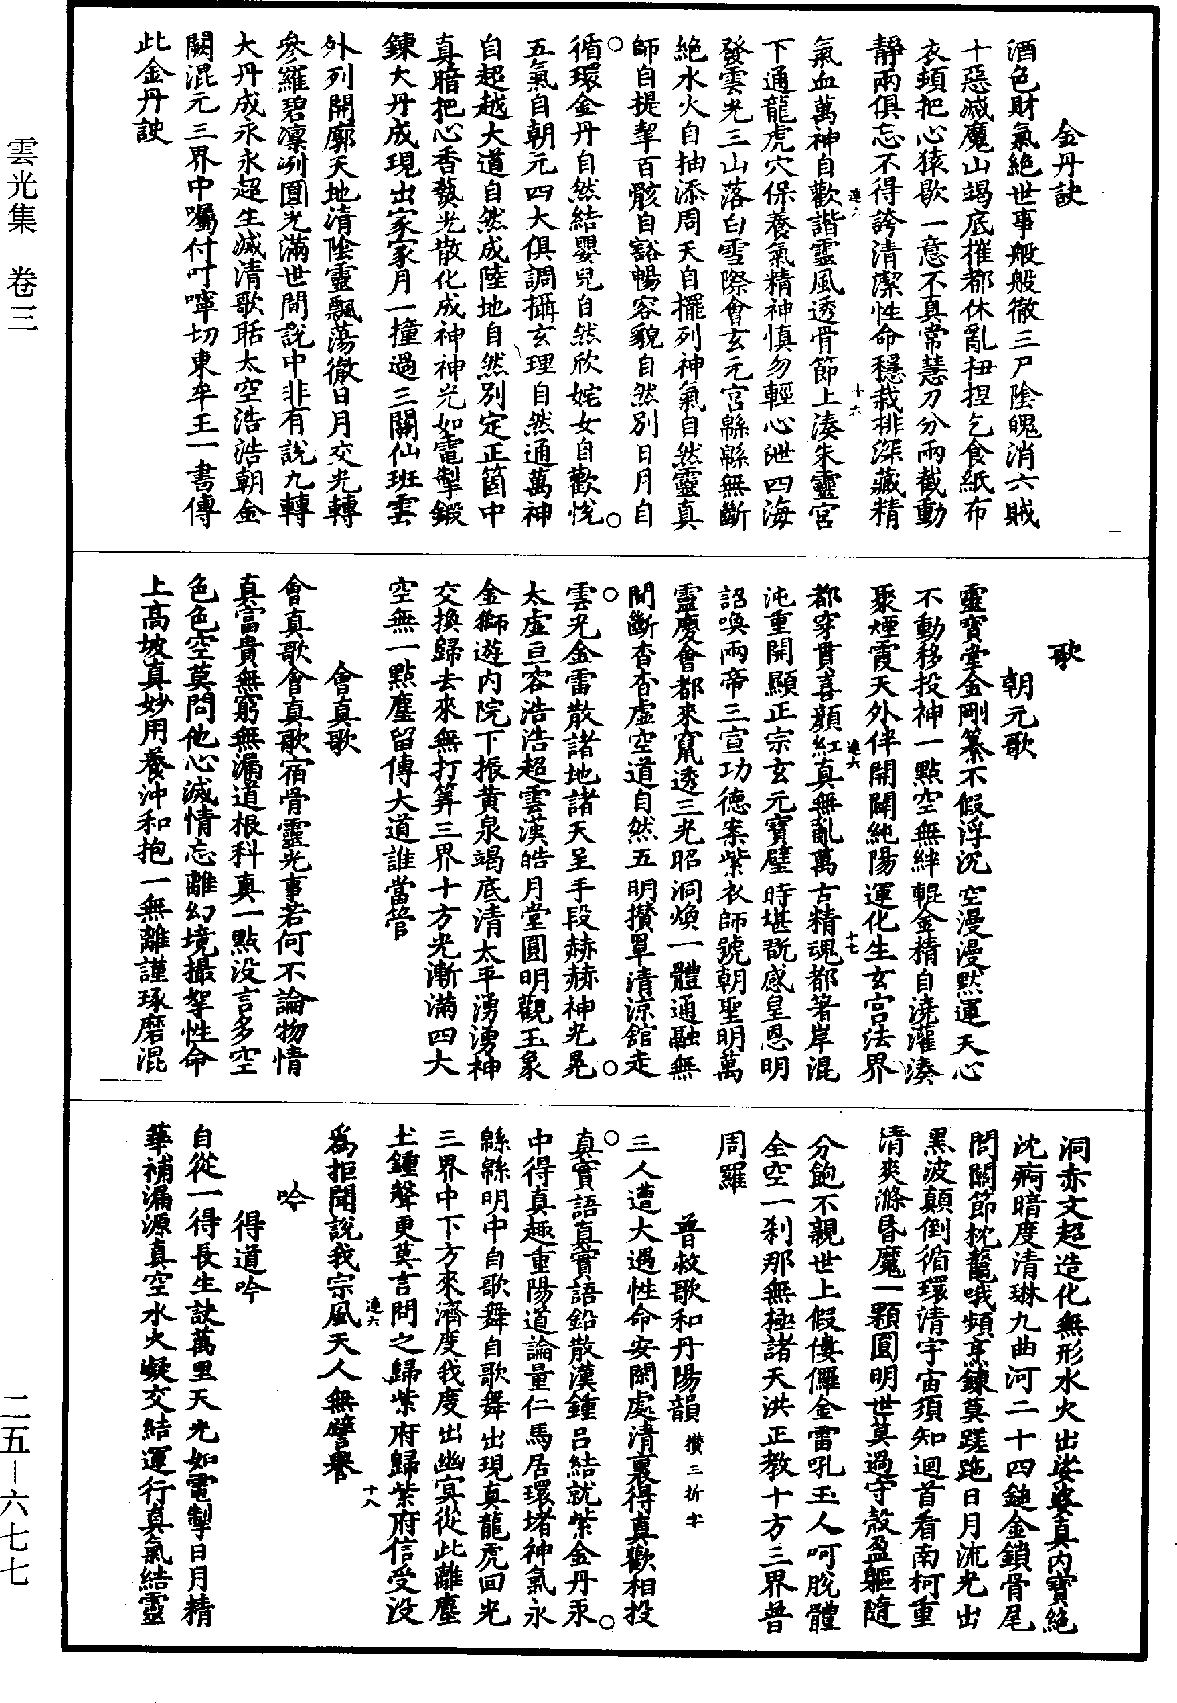 雲光集　卷三
金丹訣
酒色財氣絕世事般般徹三尸陰魄消六賊
十惡滅魔山竭底摧都休亂扭捏乞食紙布
衣頭把心猿歇一意不真常慧刀分兩截動
靜兩俱忘不得誇清潔性命穩栽排深藏精
氣血萬神自歡諧靈風透骨節上湊朱靈宮
下通龍虎穴保養氣精神慎勿輕心泄四海
發雲光三山落白雪際會玄元宮綿綿無斷
絕水火自抽添周天自擺列神氣自然靈真
師自提挈百骸自豁暢容貌自然別日月自
循環金丹自然結嬰兒自然欣姹女自歡悅
五氣自朝元四大俱調攝玄理自然通萬神
自超越大道自然成陸地自然別定正箇中
真暗把心香爇光散化成神神光如電掣鍛
鍊大丹成現出家家月一撞過三關仙班雲
外列開廓天地清陰靈飄蕩徹日月交光轉
參羅碧凛冽圓光滿世間說中非有說九轉
大丹成永永超生滅清歌聒太空浩浩朝金
闕混元三界中囑付叮嚀切東牟王一書傳
此金丹訣
歌
朝元歌
靈寶堂金剛纂不假浮沉空漫漫默運天心
不動移投神一點空無絆輥金精自澆灌湊
聚煙霞天外伴開闢純陽運化生玄宮法界
都穿貫喜顏紅真無亂萬古精魂都著岸混
沌重開顯正宗玄元寶璧時堪翫感皇恩明
詔喚兩帝三宣功德案紫衣師號朝聖明萬
靈慶會都來竄透三光昭洞煥一體通融無
間斷杳杳虛空道自然五明攅罩清涼館走
雲光金雷散諸地諸天呈手段赫赫神光晃
太虛亘容浩浩超雲漢皓月堂圓明觀玉象
金獅遊內院下振黃泉竭底清太平湧湧神
交換歸去來無打筭三界十方光漸滿四大
空無一點塵留傳大道誰當管
會真歌
會真歌會真歌宿骨靈光事若何不論物情
真富貴無窮無漏道根科真一點没言多空
色色空莫問他心滅情忘離幻境撮挐性命
上高坡真妙用養沖和抱一無離謹琢磨混
洞赤文超造化無形水火出娑婆真內寶絕
沈痾暗度清琳九曲河二十四鎚金鎖骨尾
閭關節枕鼇哦頻烹鍊莫蹉跎日月流光出
黑波顛倒循環清宇宙須知迴首看南柯重
清爽滌昏魔一顆圓明世莫過守殼盈軀隨
分飽不親世上假僂儸金雷吼玉人呵脫體
全空一刹那無極諸天洪正教十方三界普
周羅
普救歌和丹陽韻 攅三折字
三人遭大遇性命安閑處清裏得真歡相投
真實語真實語鉛散漢鍾呂結就紫金丹汞
中得真趣重陽道論量仁馬居環堵神氣永
綿綿明中自歌舞自歌舞出現真龍虎回光
三界中下方來濟度我度出幽冥從此離塵
土鍾聲更莫言問之歸紫府歸紫府信受没
爲拒聞說我宗風天人無譬譽
吟
得道吟
自從一得長生訣萬里天光如電掣日月精
華補漏源真空水火凝交結運行真氣結靈
連六
十六
連六
十七
連六
十八
二五—六七七